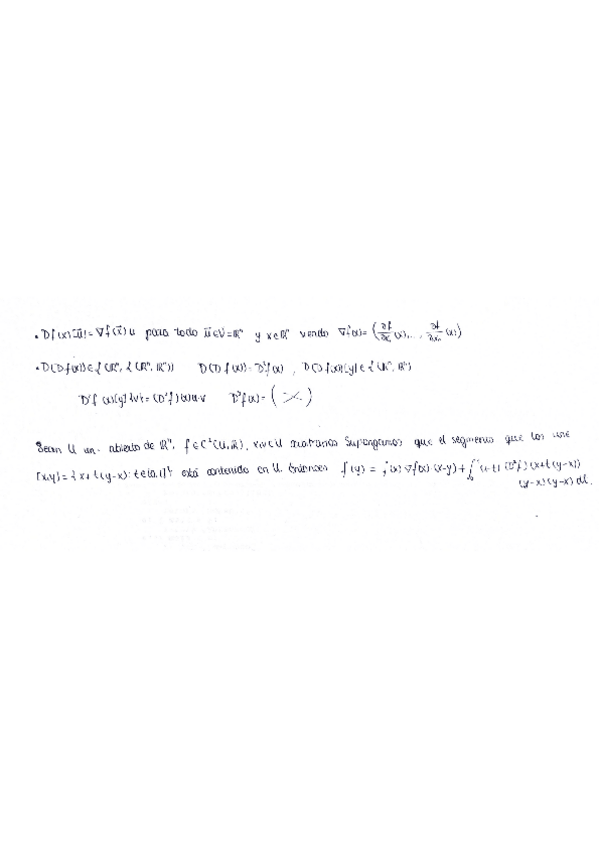 • Df(x)(ū) = ∇f(x̄)u para todo ū∈V=ℝⁿ y x∈ℝⁿ ∇f(x) = (∂f/∂x (x), ..., ∂f/∂xn (x))
• D(Df(x)) ∈ ℒ(ℝⁿ, ℒ(ℝⁿ, ℝⁿ)) D(Df(x)) = D²f(x), D(Df(x))(y) ∈ ℒ(ℝⁿ, ℝⁿ)
D²f(x)(y)(v) = (D²f)(x)u·v D²f(x) = ( )
Sean U un abierto de ℝⁿ, f∈C²(U,ℝ), Supongamos que el segmento que los une
[x,y] = {x+t(y-x): t∈[0,1]} está contenido en U. Entonces f(y) = f(x) ∇f(x) (x-y) + ∫ (1-t) (D²f) (x+t(y-x))
(y-x)(y-x) dt.